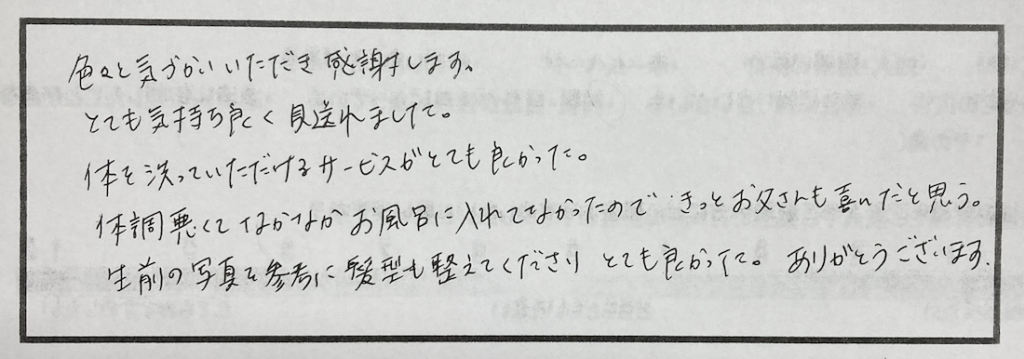 色々と気づかいいただき感謝します。
とても気持ち良く見送れました。
体を洗っていただけるサービスがとても良かった。
体調悪くてなかなかお風呂に入れてなかったので きっとお父さんも喜んだと思う。
生前の写真で参考に髪型も整えてくださり とても良かった。 ありがとうございます。